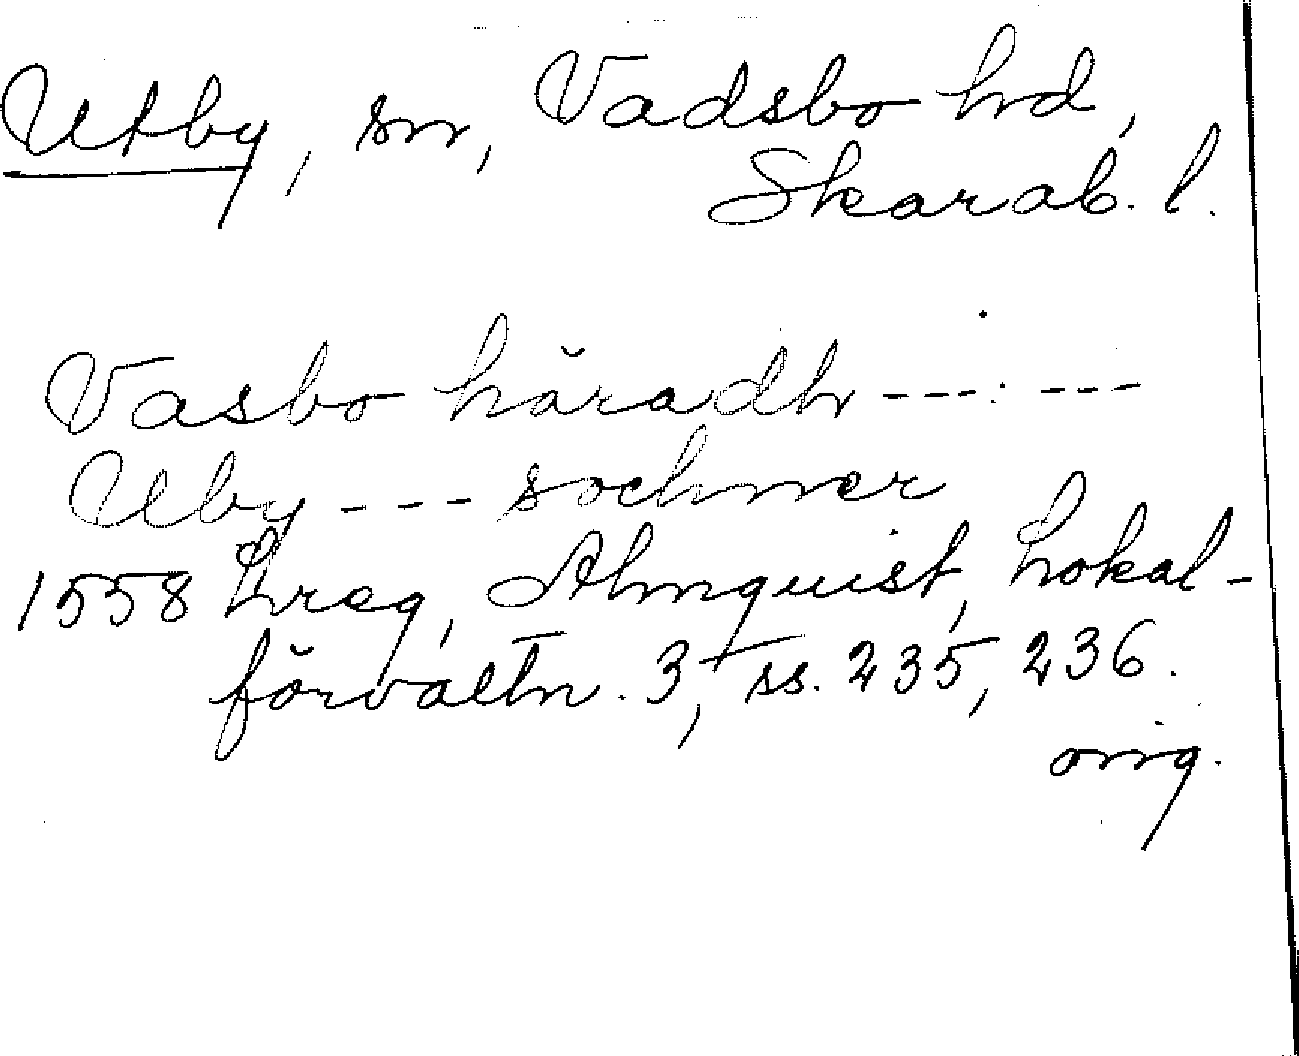 Utby, sn, Vadsbo hd,
Skarab. l.
Vasbo häradh --- ---
Uby --- sochner
1558 Lreg, Almquist, Lokal-
förvaltn. 3, ss. 235, 236.
orig.